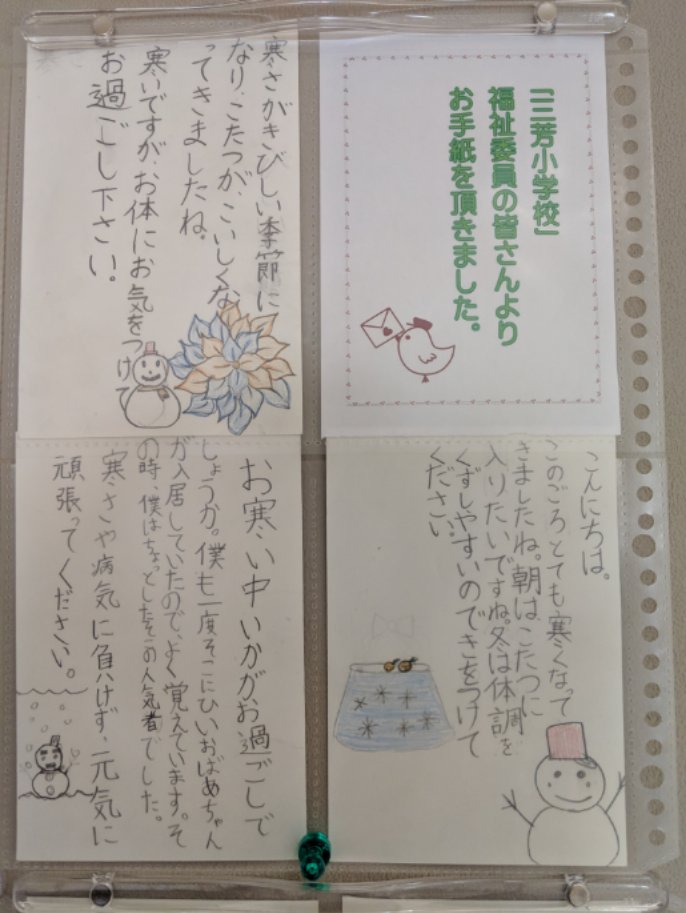 「三芳小学校」
福祉委員の皆さんより
お手紙を頂きました。
寒さがきびしい季節に
なり、こたつが、こいしくな
ってきましたね。
寒いですが、お体にお気をつけて
お過ごし下さい。
こんにちは。
このごろとても寒くなって
きましたね。朝はこたつに
入りたいですね。冬は体調を
くずしやすいのできをつけて
ください。
お寒い中いかがお過ごしで
しょうか。僕も一度そこにひいおばあちゃん
が入居していたので、よく覚えています。そ
の時、僕はちょっとしたそこの人気者でした。
寒さや病気に負けず、元気に
頑張ってください。